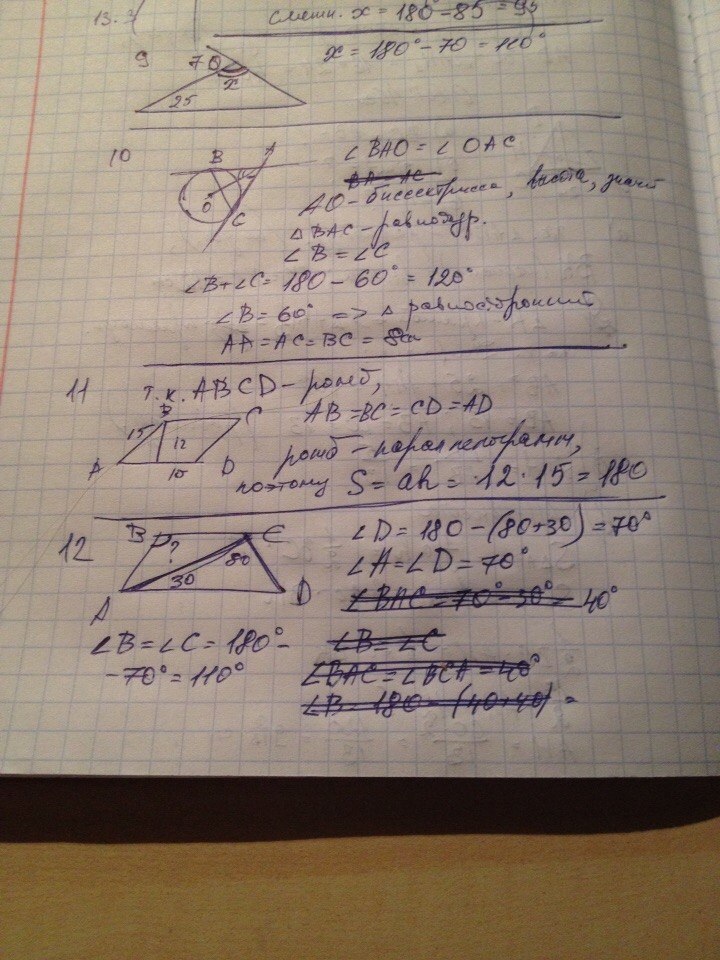 13.
смежн. x = 180° - 85 = 95
9
70
x
25
x = 180° - 70 = 110°
10
B
A
O
C
∠BAO = ∠OAC
BA = AC
AO - биссектриса, высота, значит
△BAC - равнобедр.
∠B = ∠C
∠B + ∠C = 180 - 60° = 120°
∠B = 60° => △ равносторонний
AA = AC = BC = 8см
11
т.к. ABCD - ромб,
AB = BC = CD = AD
B
C
15
12
A
15
D
ромб - параллелограмм,
поэтому S = ah = 12 · 15 = 180
12
B
C
?
80
30
A
D
∠D = 180 - (80+30) = 70°
∠A = ∠D = 70°
∠BAC = 70° - 30° = 40°
∠B = ∠C = 180° -
- 70° = 110°
∠B = ∠C
∠BAC = ∠BCA = 40°
∠B = 180 - (40+40) =